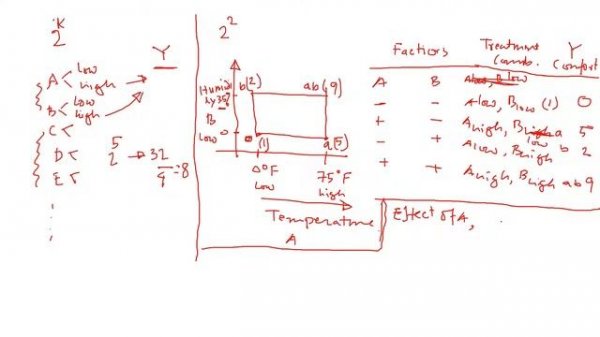 2^k
Y
A < low
high
B < low
high
C <
D <
E <
2^5 → 32
32/4 = 8
2^2
b(2)
ab(9)
Humidity 35%
B
Low 0
(1)
a(5)
0°F
Low
75°F
high
Temperature
A
Factors
Treatment Comb.
Y
Comfort
A B
- - Alow, Blow (1) 0
+ - Ahigh, Blow a 5
- + Alow, Bhigh b 2
+ + Ahigh, Bhigh ab 9
Effect of A,